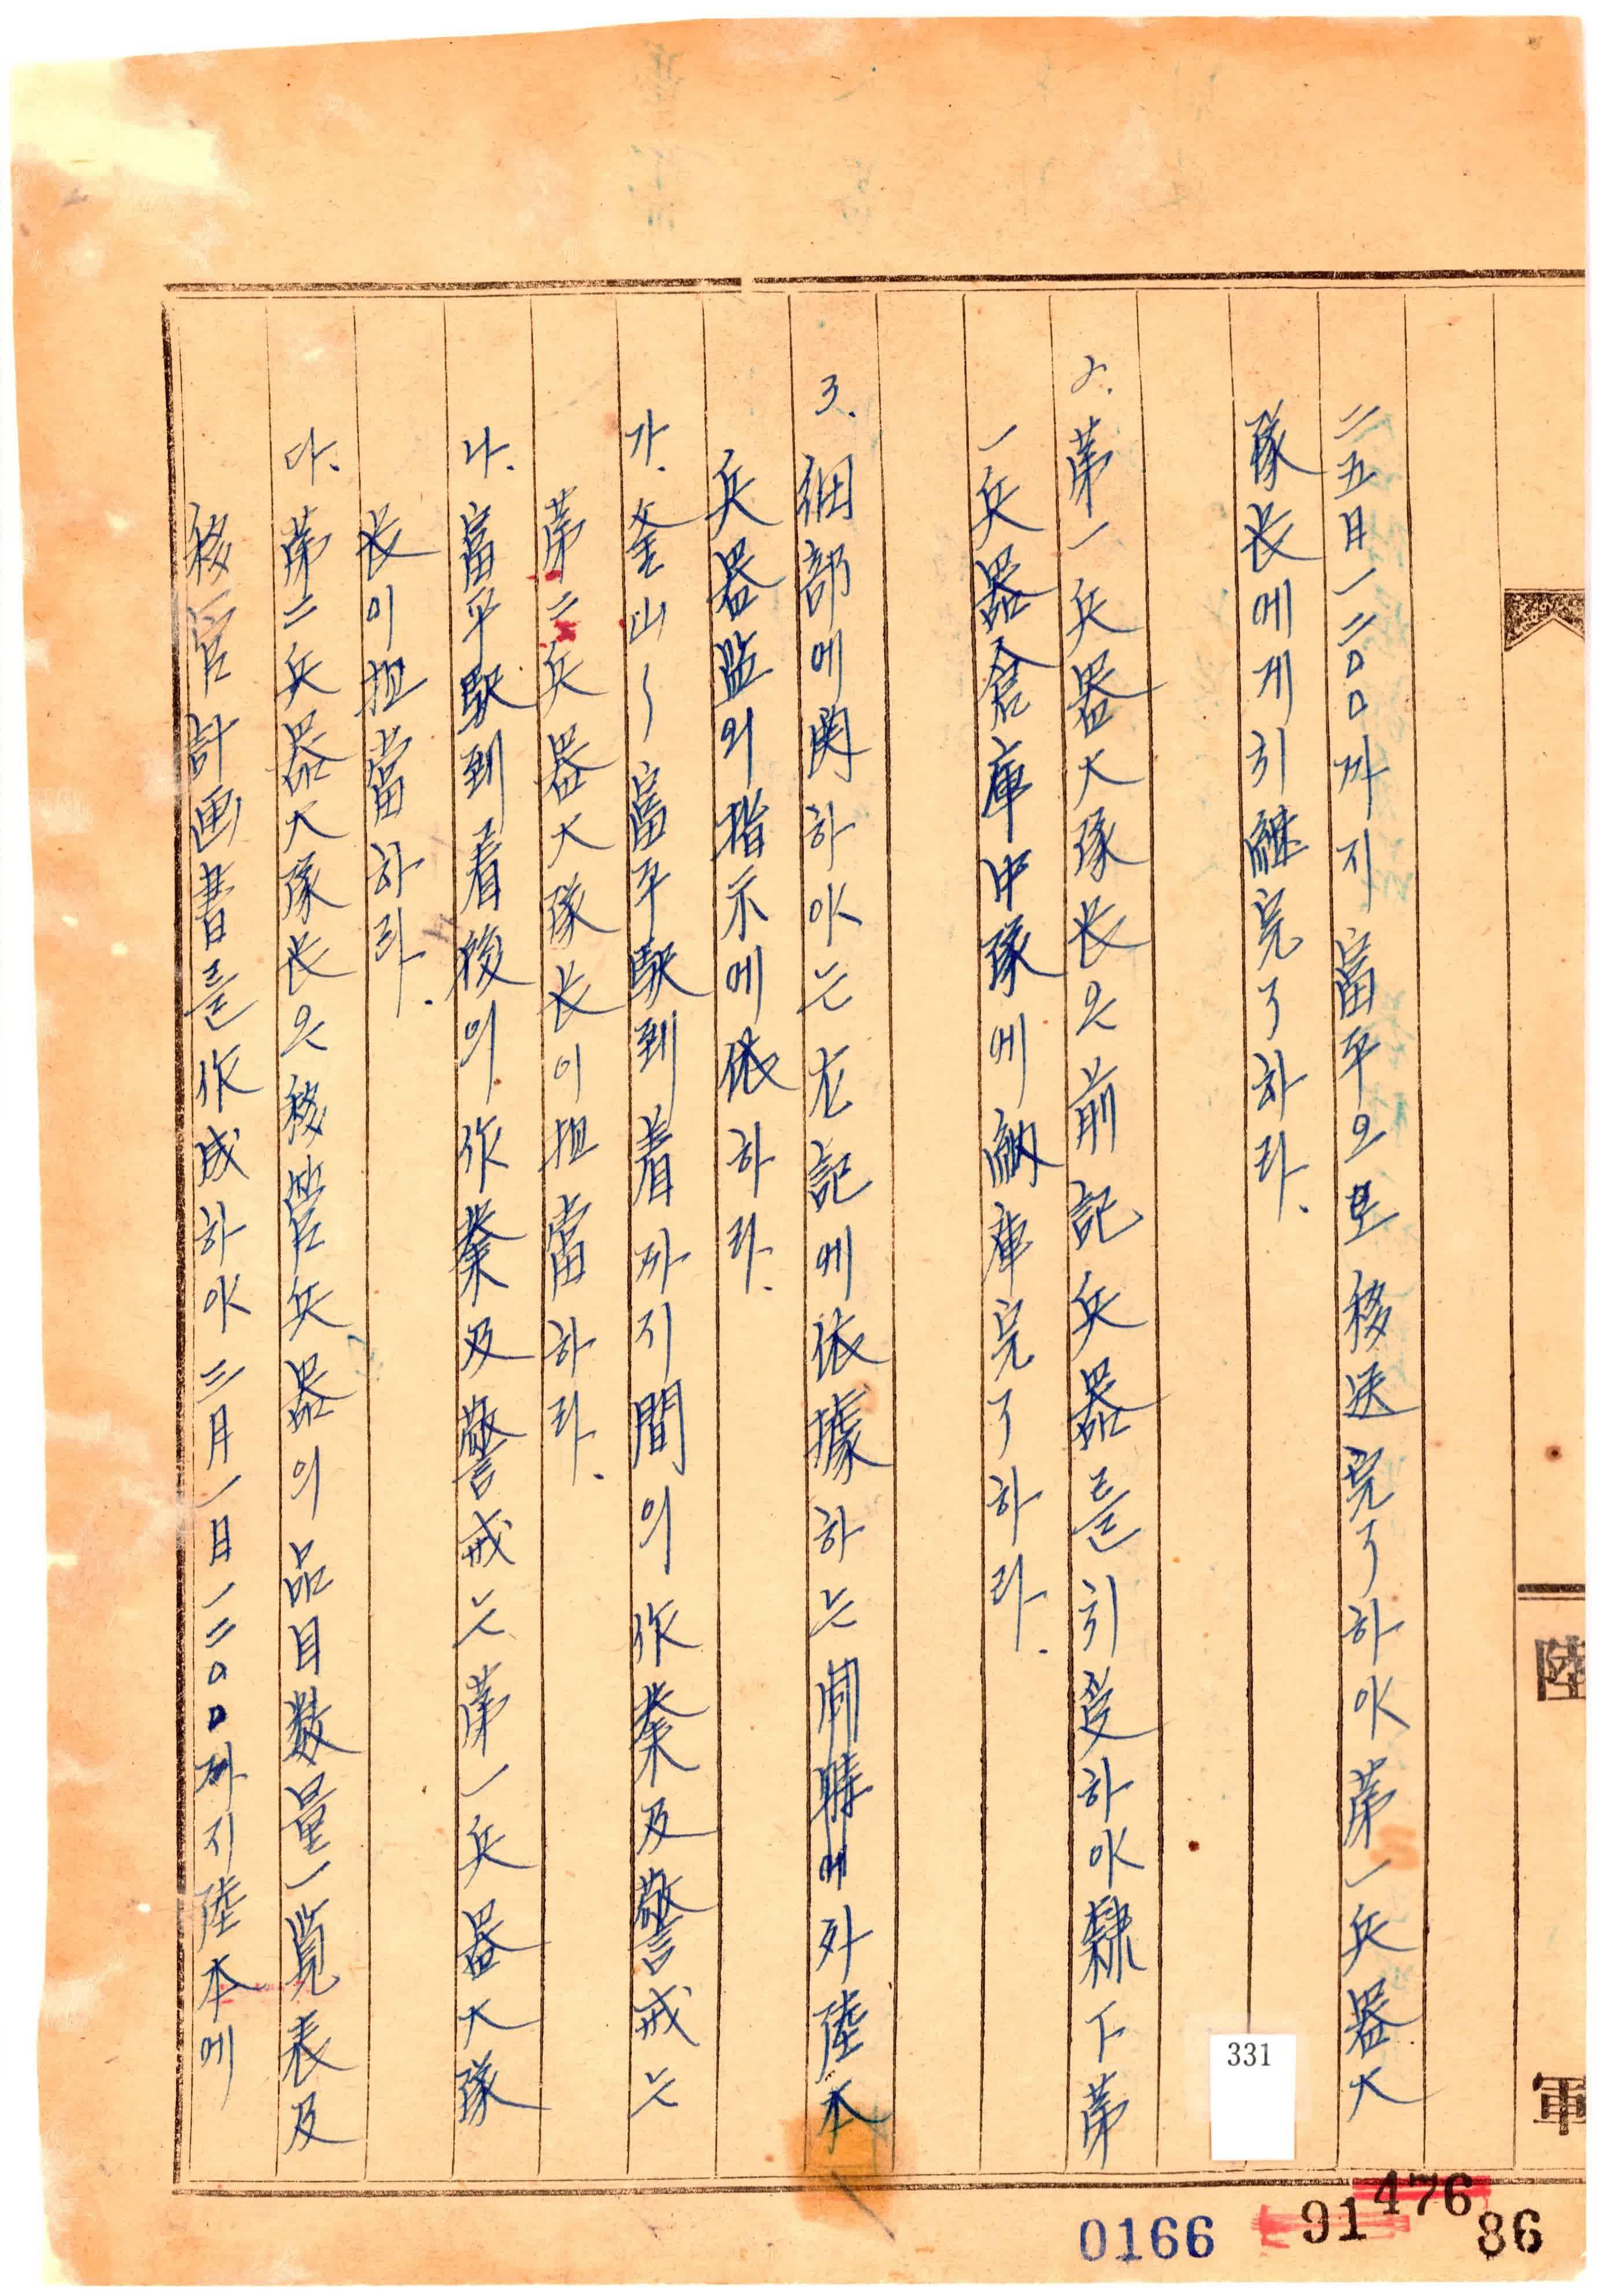 二五日一二〇〇까지 富平으로 移送完了하야 第一兵器大
隊長에게 引継完了하라.
2. 第一兵器大隊長은 前記兵器를 引受하야 隷下第
一兵器倉庫中隊에 納庫完了하라.
3. 細部에 関하야는 左記에 依據하는 同時에 外 陸本
兵器監의 指示에 依하라.
가. 釜山~富平駅到着까지 間의 作業及警戒는
第二兵器大隊長이 担當하라.
나. 富平駅到着後의 作業及警戒는 第一兵器大隊
長이 担當하라.
다. 第二兵器大隊長은 移管兵器의 品目数量一覧表及
移管計画書를 作成하야 三月一日一二〇〇까지 陸本에
陸
軍
331
0166
91
476
86